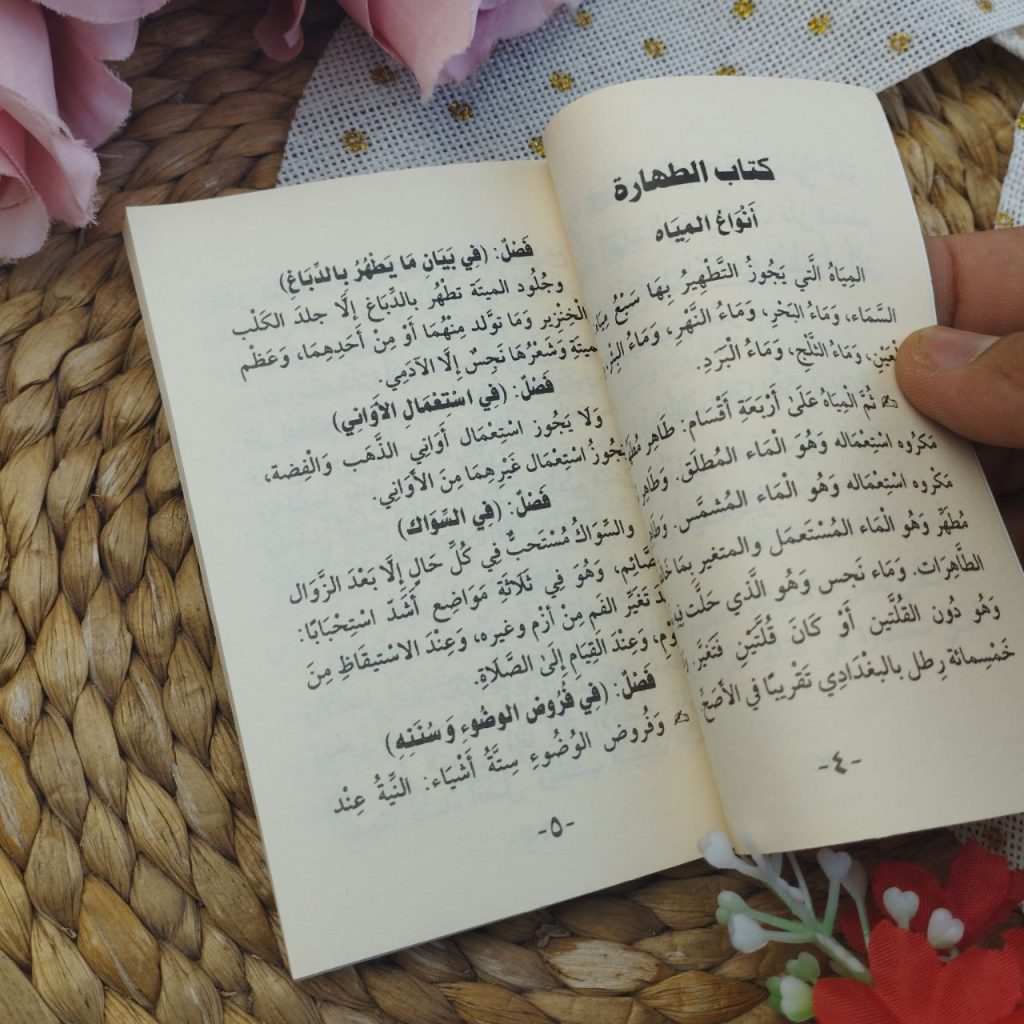 كتاب الطهارة
أَنْوَاعُ المِيَاه
المِيَاهُ الَّتي يَجُوزُ التَّطْهِيرُ بِهَا سَبْعُ مِيَاه
السَّمَاء، وَمَاءُ البَحْرِ، وَمَاءُ النَّهْرِ، وَمَاءُ البِئْرِ،
وَمَاءُ الثَّلْجِ، وَمَاءُ الْبَرَدِ.
ثُمَّ الْمِيَاهُ عَلَىٰ أَرْبَعَةِ أَقْسَامٍ: طَاهِر
مَكْرُوه اسْتِعْمَاله وَهُوَ الْمَاء المُطلَق. وَطَاهِر
مَكْرُوه اسْتِعْمَاله وَهُوَ الْمَاء المُشمَّس. وَطَاهِر
مُطهَّر وَهُوَ الْمَاء المُسْتَعمَل والمتغير بِمَا
الطَّاهِرَات. وَمَاء نَجس وَهُوَ الَّذي حَلَّت فِيهِ
وَهُو دُون القُلَّتين أَوْ كَانَ قُلَّتَيْنِ فَتَغَيَّر.
خَمْسمائة رِطل بالبغْدَادِي تَقْرِيبًا في الأَصَحِّ
-٤-
فَصْلٌ: (فِي بَيَانِ مَا يَطْهُرُ بِالدِّبَاغِ)
وجُلُود الميتَة تطْهُر بالدِّبَاغ إلَّا جلدَ الكَلْب
الْخِنْزِير وَمَا توَلَّد مِنْهُمَا أَوْ مِنْ أَحَدِهِمَا، وَعَظْم
وَشَعْرُهَا نَجِسٌ إِلَّا الآدَمِي.
فَصْلٌ: (فِي اسْتِعْمَالِ الأَوَانِي)
وَلَا يَجُوز اسْتِعْمَال أَوَانِي الذَّهَب وَالْفِضة،
اسْتِعْمَال غَيْرِهِمَا مِنَ الأَوَانِي.
فَصْلٌ: (فِي السِّوَاك)
والسِّوَاكُ مُسْتَحبٌّ فِي كُلِّ حَالٍ إِلَّا بَعْدَ الزَّوَال
وَهُوَ فِي ثَلَاثَةِ مَوَاضِع أَشَدّ اسْتِحْبَابًا:
تَغَيّر الفَم مِنْ أزْم وغيره، وَعِنْدَ الاسْتِيقَاظِ مِنَ
وَعِنْدَ القِيَامِ إلَىٰ الصَّلَاةِ.
فَصْلٌ: (فِي فُرُوض الوضُوءِ وَسُنَنِهِ)
وَفُروض الوُضُوءِ سِتَّةُ أَشْيَاء: النِّيَّةُ عِنْد
-٥-